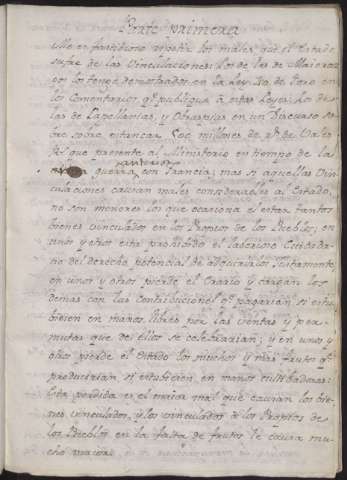 Parte primera
Me es fastidioso repetir los males que el Estado
sufre de las Vinculaciones: los de las de Maiorazgos
los tengo demostrados en la Ley 30 de Toro en
los Comentarios qe publique a estas Leyes: Los de
las de Capellanias, y Obras pias en un Discurso so
bre sobre estancar 600 millones de rs de Vales
Rs que presente al Ministerio en tiempo de la
anterior
guerra con Francia; mas si aquellas Vin
culaciones causan males considerables al Estado,
no son menores los que ocasiona el estar tantos
bienes vinculados en los Propios de los Pueblos; en
unos y otros está prohibido el laborioso Ciudada
no del derecho potencial de adquirirlos libremente,
en unos y otros pierde el Erario y cargan los
demas con las contribuciones qe pagarian si estu
biesen en manos libres por las ventas y per
mutas que de ellos se celebrarian; y en unos y
otros pierde el Estado los muchos y mas frutos qe
producirian, si estubiesen en manos cultibadoras:
Esta perdida es el maior mal que causan los bie
nes vinculados, y los vinculados a los Propios de
los Pueblos en la falta de frutos le causa mu
cho maior.